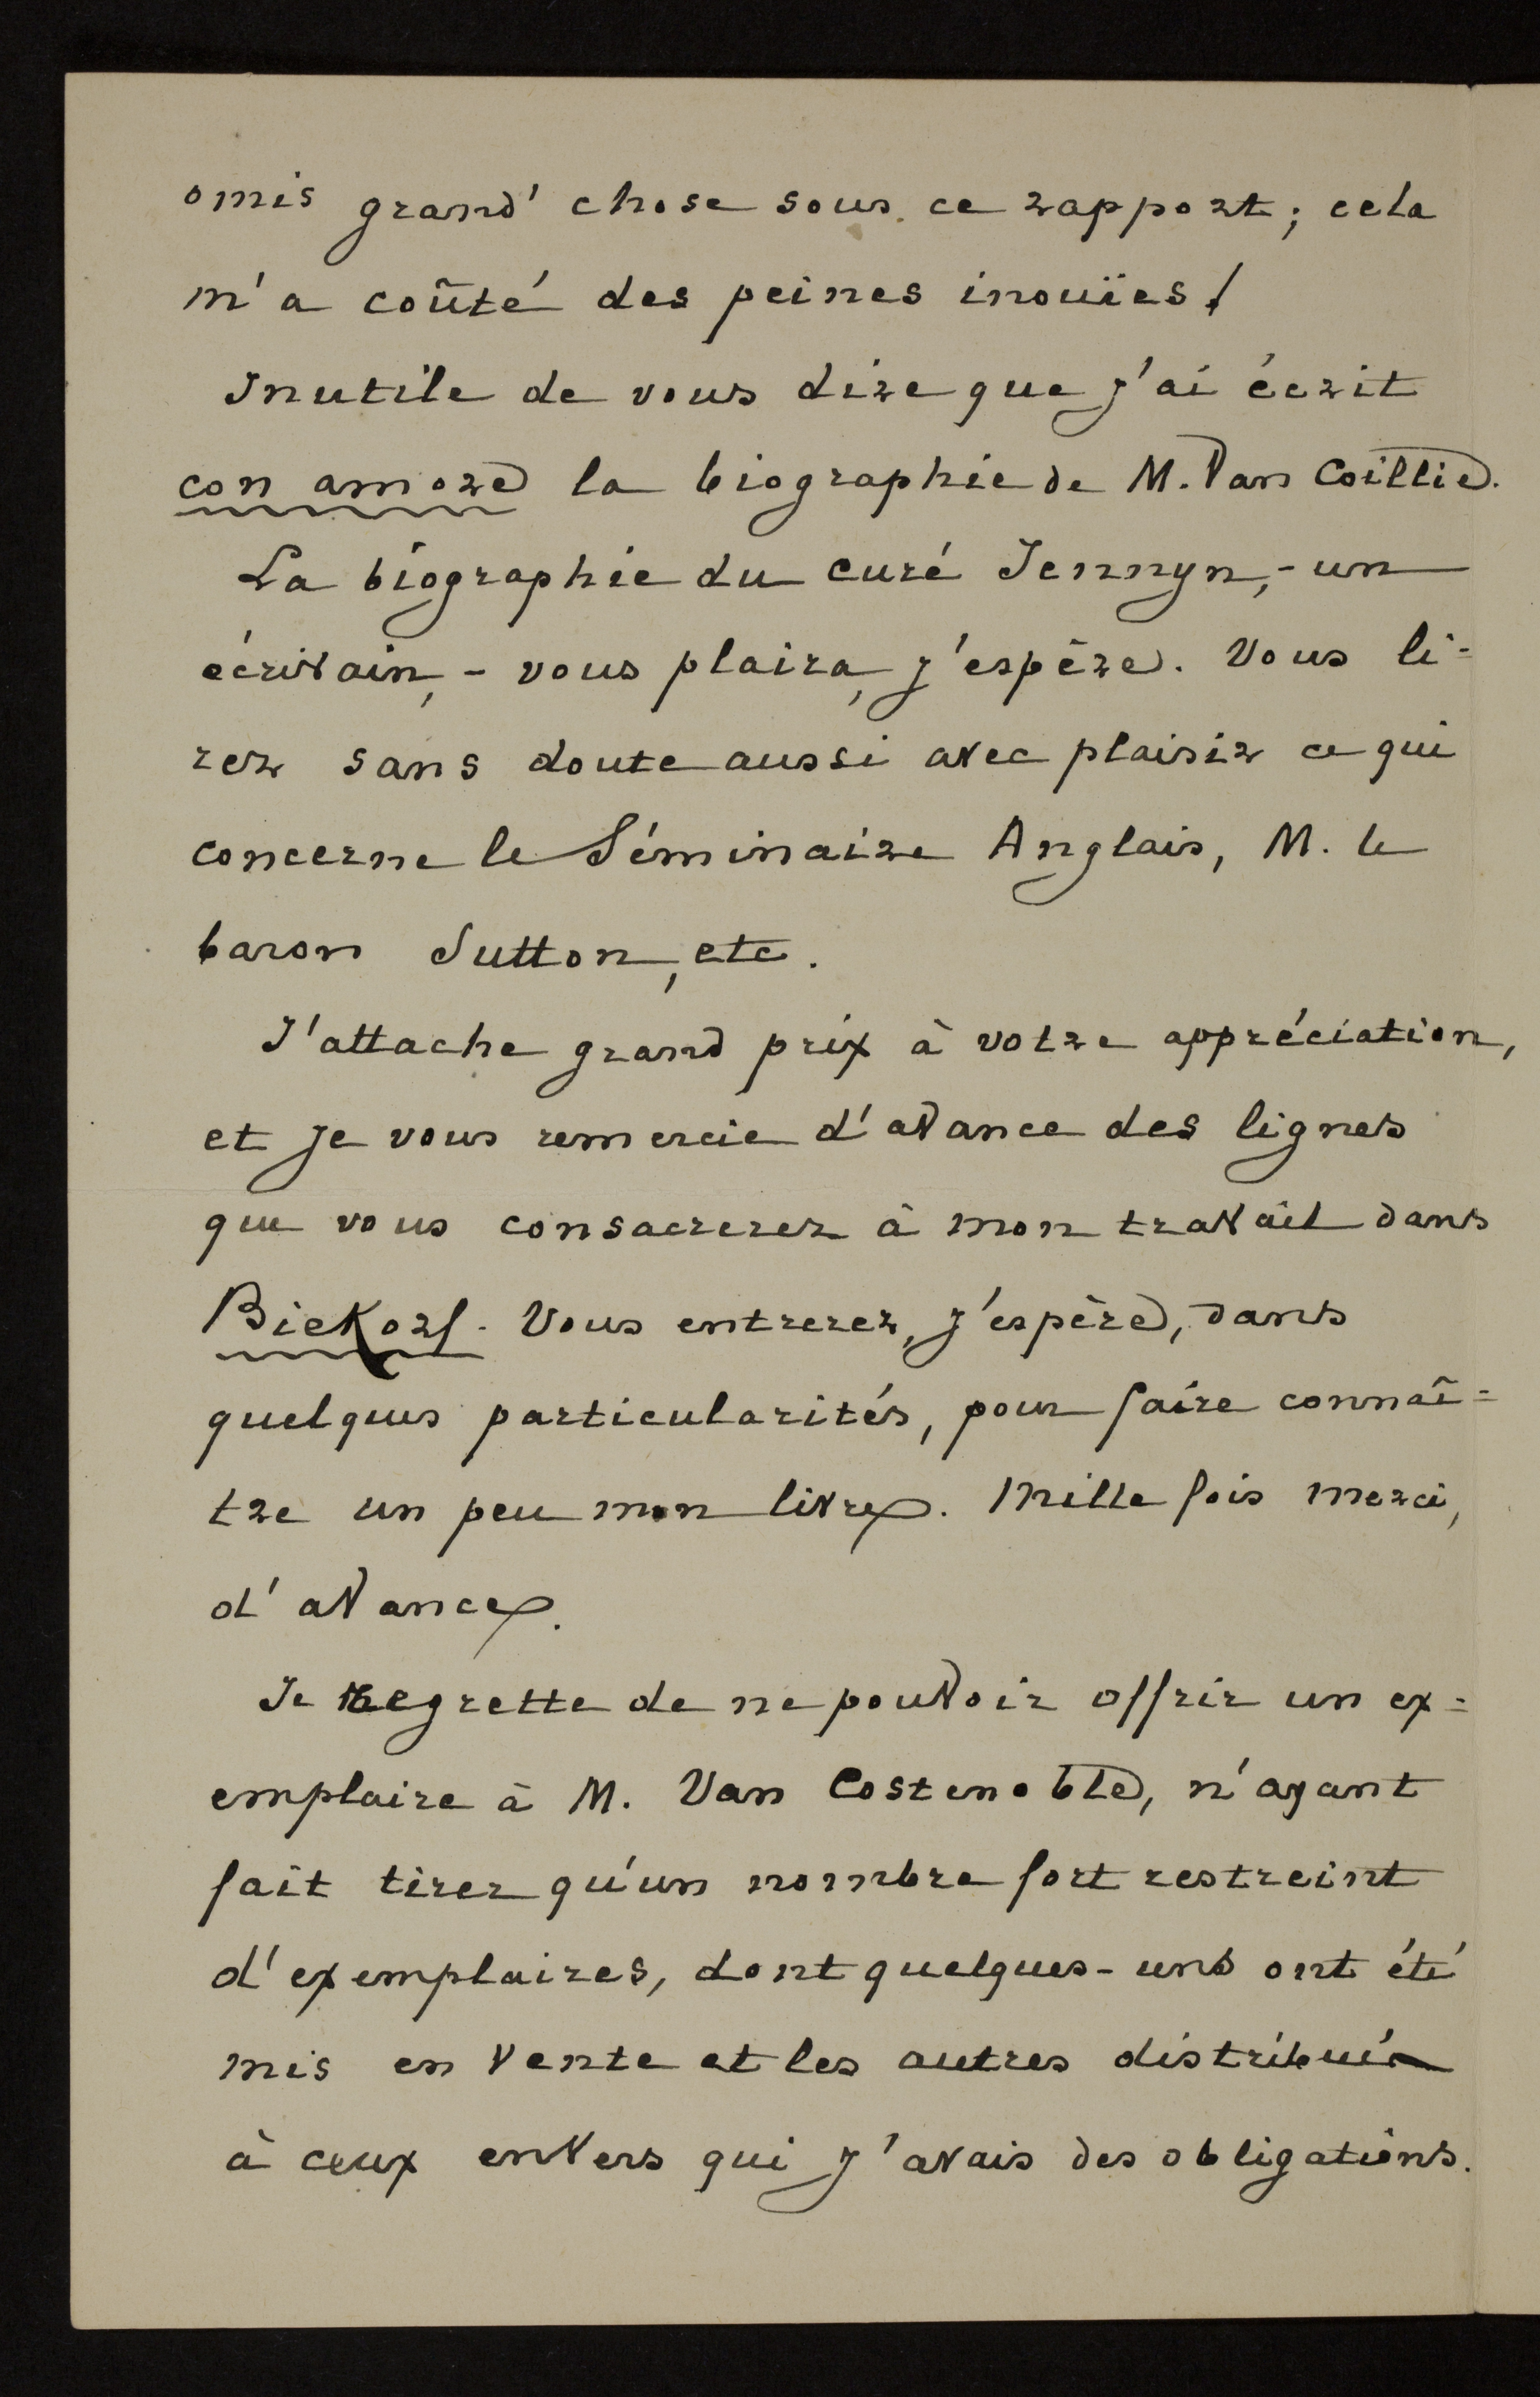 omis grand' chose sous ce rapport; cela
m'a coûté des peines inouïes!
Inutile de vous dire que j'ai écrit
con amore la biographie de M. Van Coillie.
La biographie du curé Jennyn, - un
écrivain, - vous plaira, j'espère. Vous li-
rez sans doute aussi avec plaisir ce qui
concerne le Séminaire Anglais, M. le
baron Sutton, etc.
J'attache grand prix à votre appréciation,
et je vous remercie d'avance des lignes
que vous consacrerez à mon travail dans
Biekorf. Vous entrerez, j'espère, dans
quelques particularités, pour faire connaî-
tre un peu mon livre. Mille fois merci,
d'avance.
Je regrette de ne pouvoir offrir un ex-
emplaire à M. Van Costenoble, n'ayant
fait tirer qu'un nombre fort restreint
d'exemplaires, dont quelques-uns ont été
mis en vente et les autres distribués
à ceux envers qui j'avais des obligations.